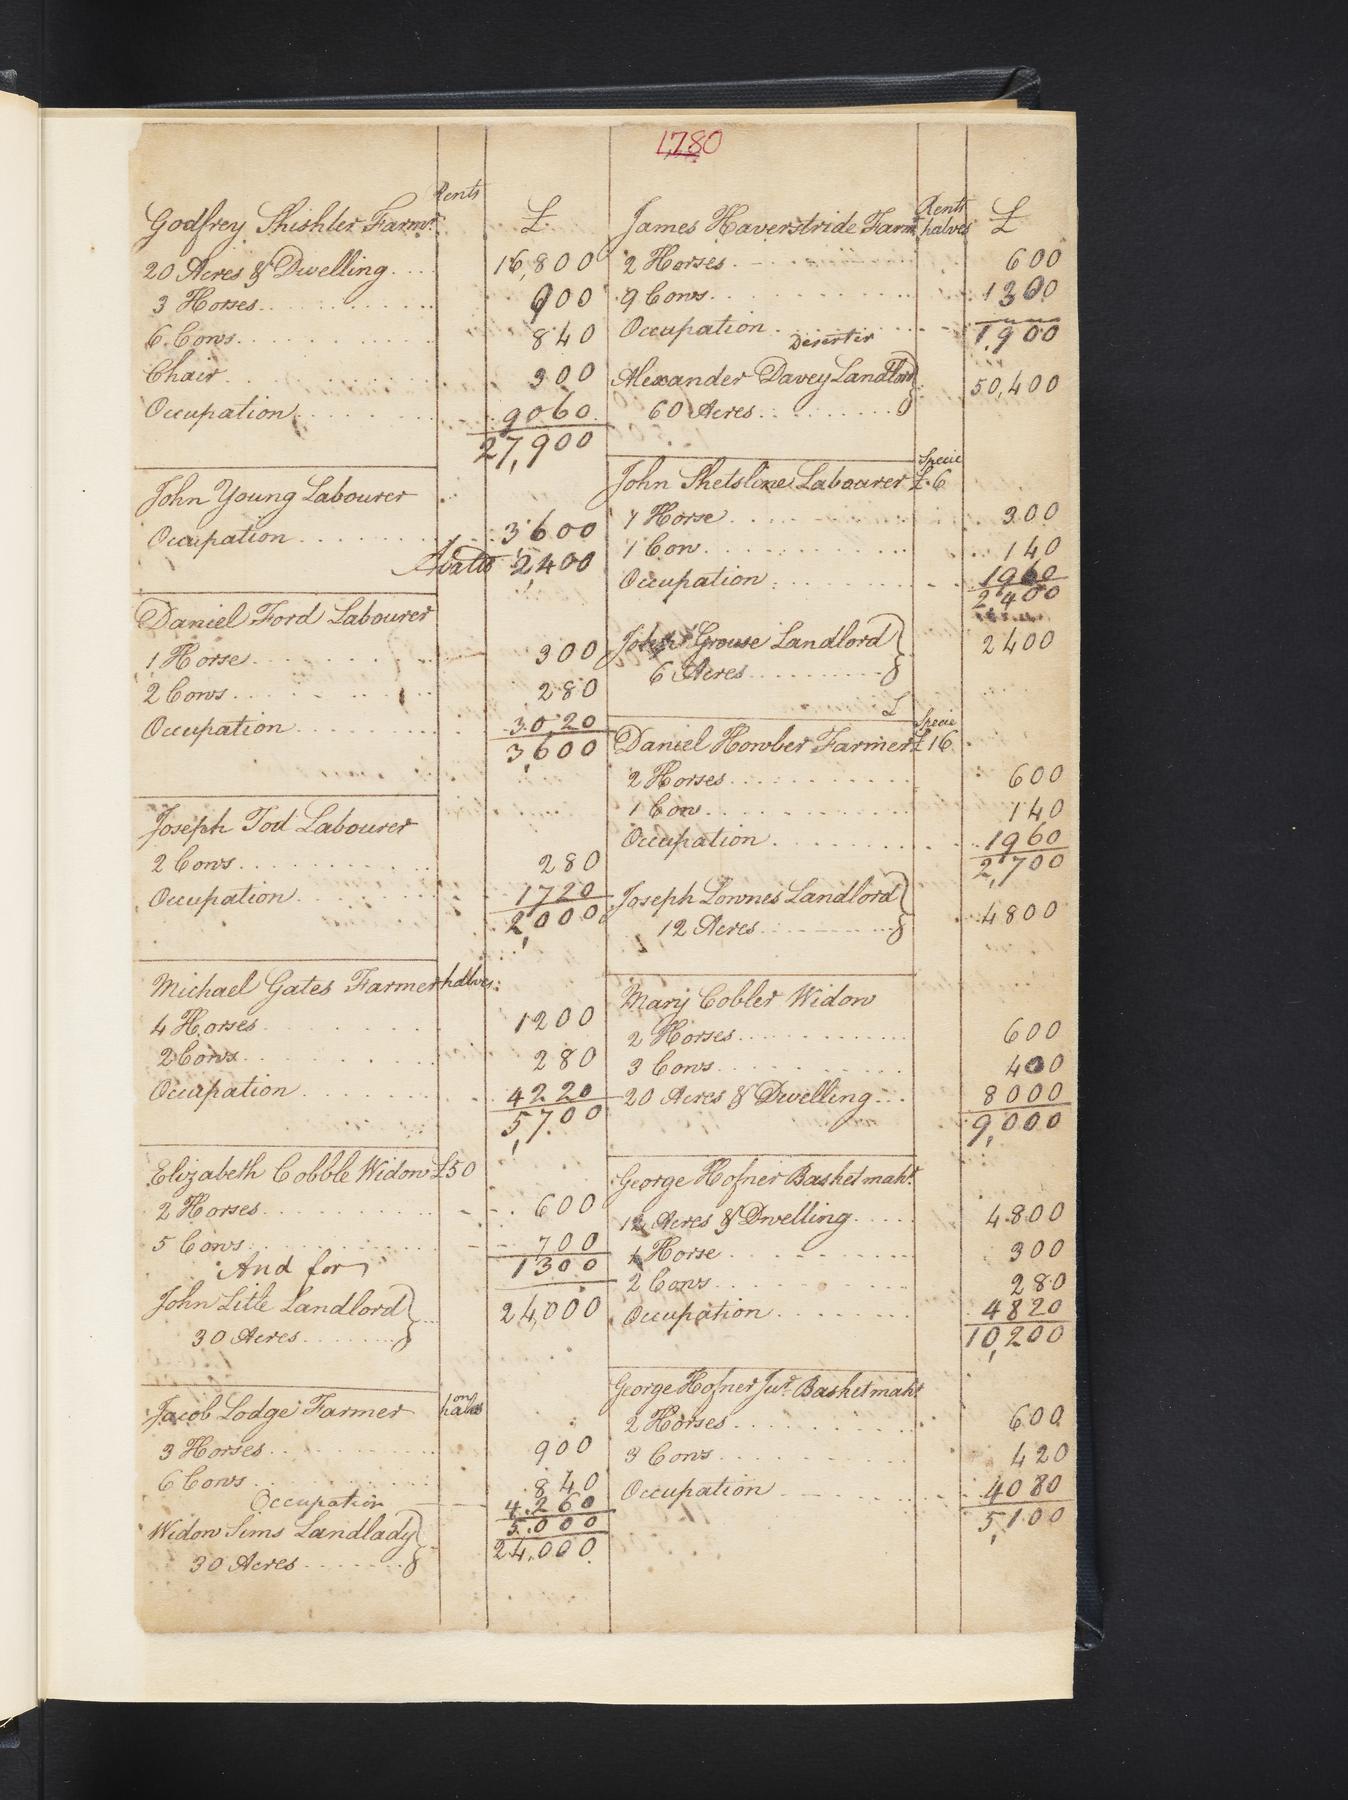 1780
Rents
Godfrey Shishler Farmr. £
20 Acres & Dwelling 16,800
3 Horses 900
6 Cows 840
Chair 300
Occupation 9060
27,900
John Young Labourer
Occupation 3600
Abated 2,400
Daniel Ford Labourer
1 Horse 300
2 Cows 280
Occupation 3020
3,600
Joseph Tod Labourer
2 Cows 280
Occupation 1720
2,000
Michael Gates Farmer halves
4 Horses 1200
2 Cows 280
Occupation 4220
5,700
Elizabeth Cobble Widow £50
2 Horses 600
5 Cows 700
And for 1300
John Litle Landlord 24,000
30 Acres
Jacob Lodge Farmer on halves
3 Horses 900
6 Cows 840
Occupation 4.260
5.000
Widow Sims Landlady 24.000
30 Acres
Rents
James Haverstride Farmr halves £
2 Horses 600
9 Cows 1300
Occupation 1,900
Deserter
Alexander Davey Landlord 50,400
60 Acres
Specie
John Shetsline Labourer £.6
1 Horse 300
1 Cow 140
Occupation 1960
2,400
John Grouse Landlord 2400
6 Acres
£ Specie
Daniel Howber Farmer £16
2 Horses 600
1 Cow 140
Occupation 1960
2,700
Joseph Lownes Landlord 4800
12 Acres
Mary Cobler Widow
2 Horses 600
3 Cows 400
20 Acres & Dwelling 8000
9,000
George Hofner Basketmakr.
12 Acres & Dwelling 4800
1 Horse 300
2 Cows 280
Occupation 4820
10,200
George Hofner Junr. Basketmakr
2 Horses 600
3 Cows 420
Occupation 4080
5,100